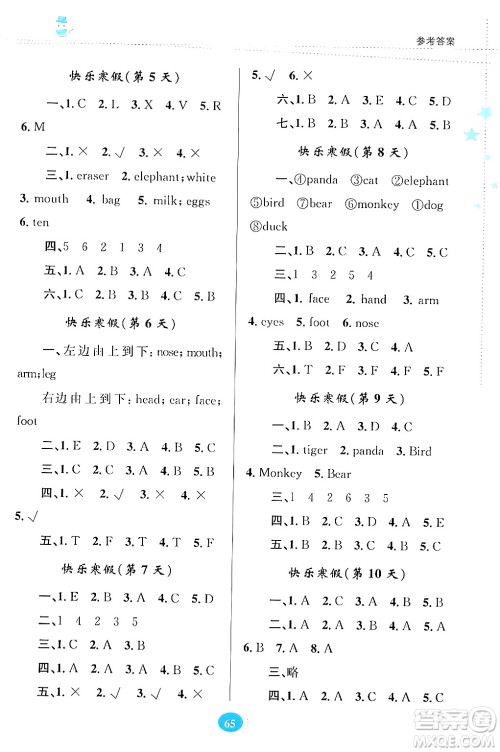 参考答案
快乐寒假(第5天)
一、1. C 2. L 3. X 4. V 5. R
6. M
二、1. × 2. √ 3. √ 4. × 5. ×
三、1. eraser 2. elephant; white
3. mouth 4. bag 5. milk; eggs
6. ten
四、5 6 2 1 3 4
五、1. C 2. A 3. A 4. B 5. C
六、1. B 2. A 3. A 4. C 5. B
快乐寒假(第6天)
一、左边由上到下: nose; mouth;
arm; leg
右边由上到下: head; ear; face;
foot
二、1. E 2. D 3. A 4. B 5. C
三、1. B 2. A 3. B 4. A 5. C
四、1. × 2. √ 3. × 4. ×
5. √
五、1. T 2. F 3. T 4. T 5. F
快乐寒假(第7天)
一、1. E 2. B 3. A 4. D 5. C
二、1 4 2 3 5
三、1. C 2. B 3. A 4. B 5. C
四、1. A 2. C 3. A 4. B 5. A
五、1. × 2. × 3. √ 4. √
5. √ 6. ×
六、1. B 2. A 3. B 4. C 5. C
七、1. B 2. B 3. A 4. C 5. A
快乐寒假(第8天)
一、①panda ③cat ②elephant
⑤bird ⑥monkey ①dog
⑧duck
二、1. A 2. B 3. A 4. C 5. C
三、1 3 2 5 4
四、1. face 2. hand 3. arm
4. eyes 5. foot 6. nose
五、1. T 2. F 3. T 4. F 5. F
快乐寒假(第9天)
一、1. C 2. A 3. A 4. B 5. B
二、1. tiger 2. panda 3. Bird
4. Monkey 5. Bear
三、1 4 2 6 3 5
四、1. D 2. B 3. C 4. A 5. E
五、1. C 2. B 3. A 4. A 5. C
快乐寒假(第10天)
一、1. C 2. B 3. C 4. B 5. A
二、1. A 2. C 3. A 4. C 5. C
6. B 7. A 8. A 9. C 10. B
三、略
四、1. B 2. A 3. B 4. C 5. A
五、1. B 2. A 3. C 4. A 5. C
65
作业帮
MXQE.COM